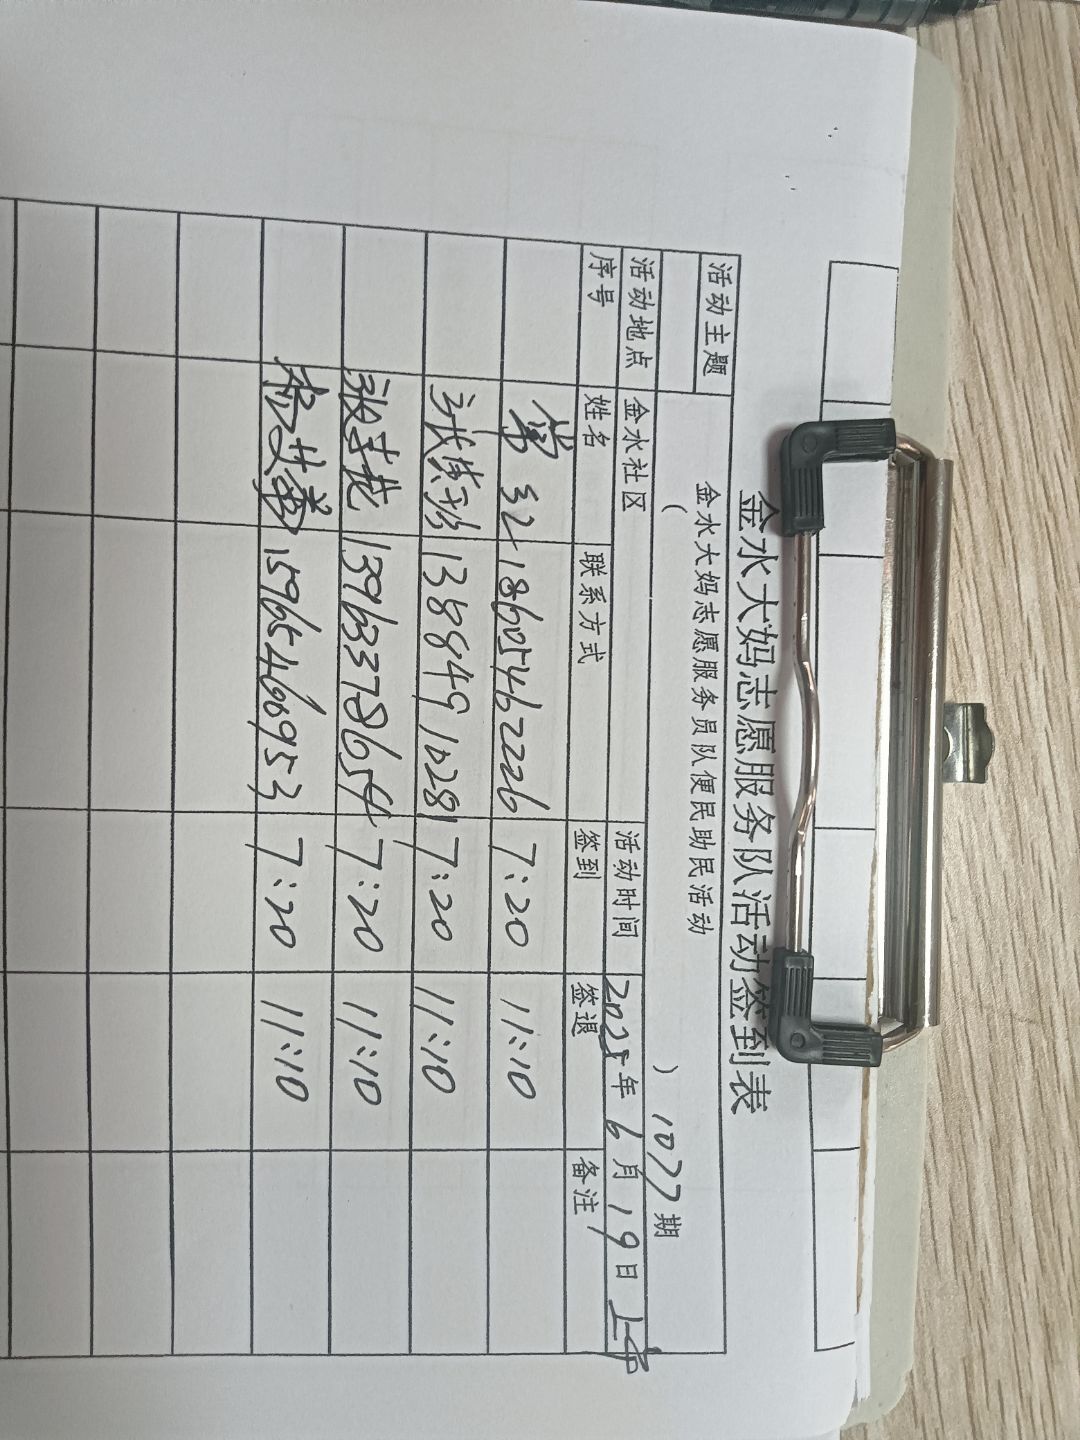 金水大妈志愿服务队活动签到表
活动主题 金水大妈志愿服务员队便民助民活动
( ) 1077期
活动地点 金水社区 活动时间 2025年6月19日上午
序号 姓名 联系方式 签到 签退 备注
18605462226 7:20 11:10
13884910281 7:20 11:10
13963378654 7:20 11:10
15965466953 7:20 11:10